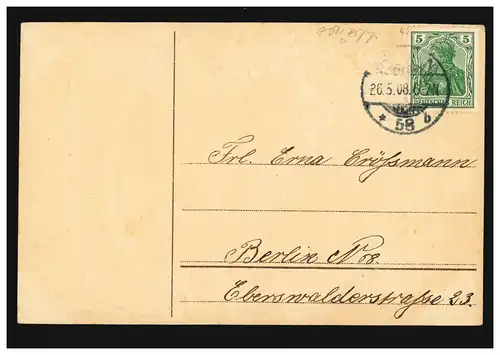 5
DEUTSCHES REICH
26.5.08.
* 58 b
Frl. Erna Crößmann
Berlin No 58.
Eberswalderstrasse 23.